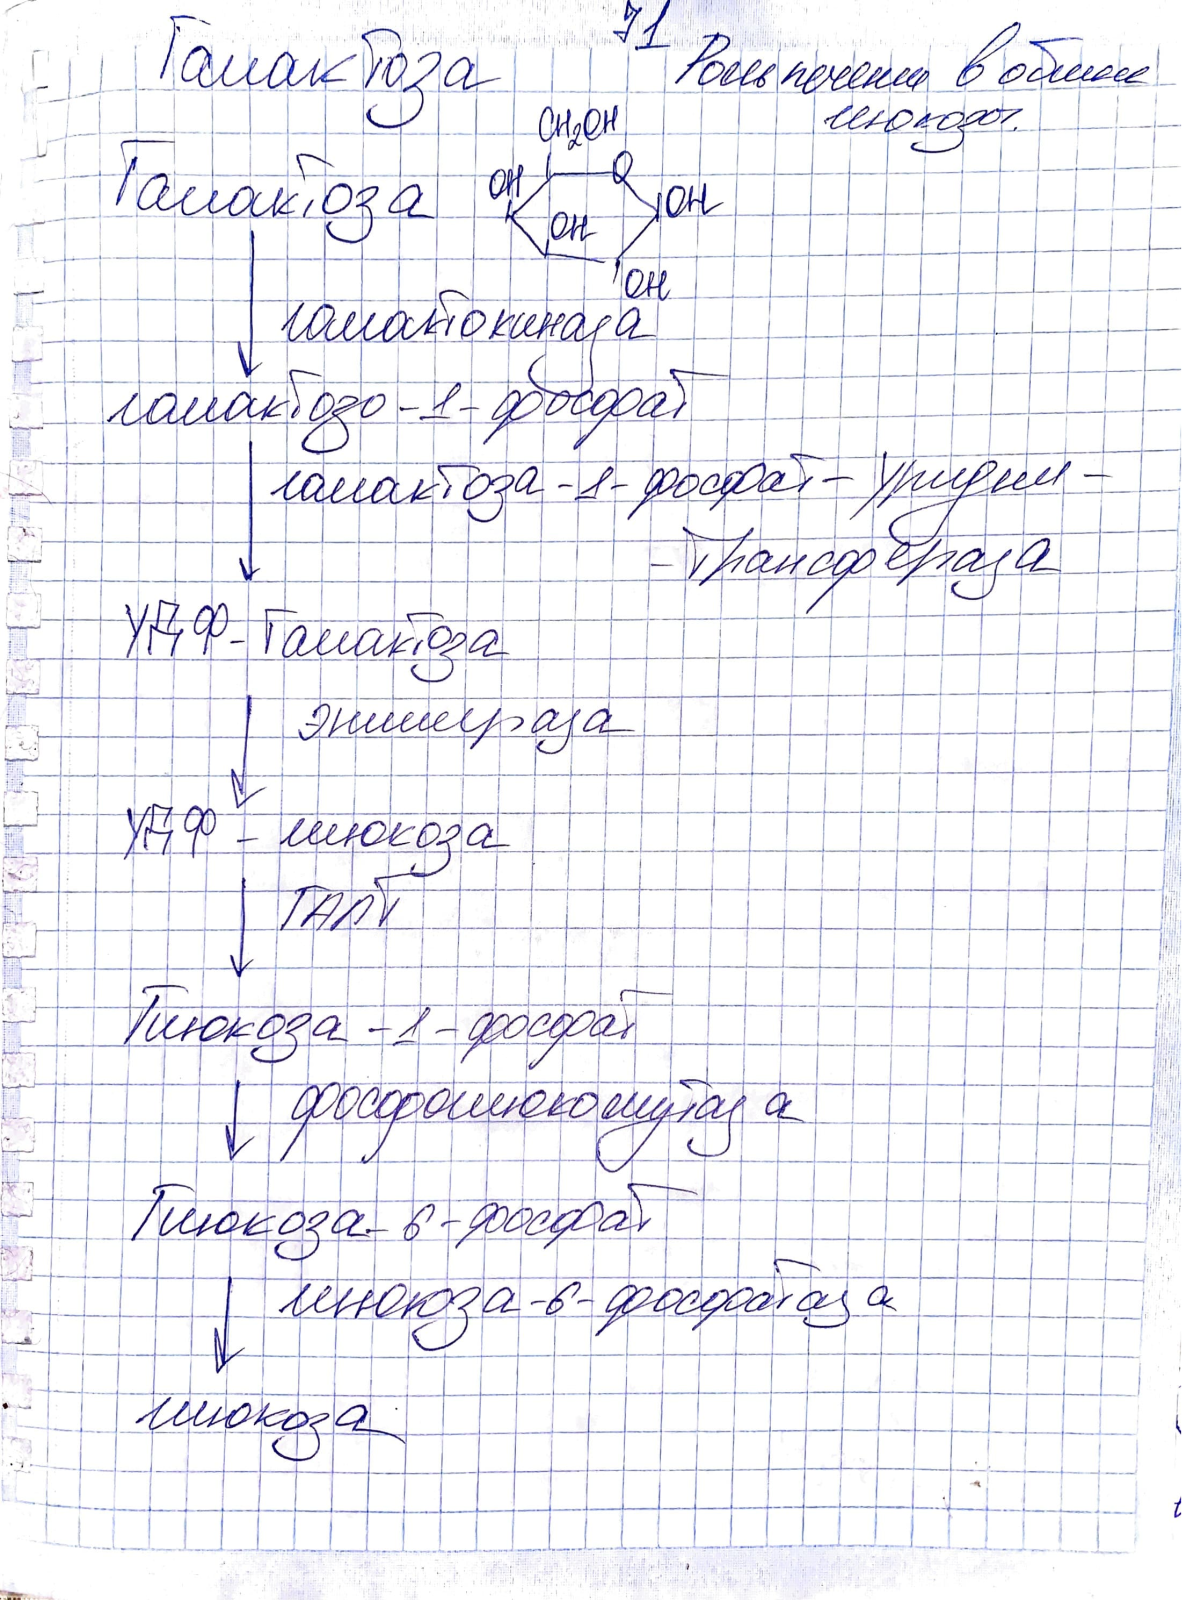 71
Галактоза
Роль печени в обмене
глюкозы.
Галактоза
CH₂OH
O
OH
OH
OH
OH
галактокиназа
галактозо-1-фосфат
галактоза-1-фосфат-уридил-
-трансфераза
УДФ-Галактоза
эпимераза
УДФ-глюкоза
ГАЛТ
Глюкоза-1-фосфат
фосфоглюкомутаза
Глюкоза-6-фосфат
глюкоза-6-фосфатаза
глюкоза